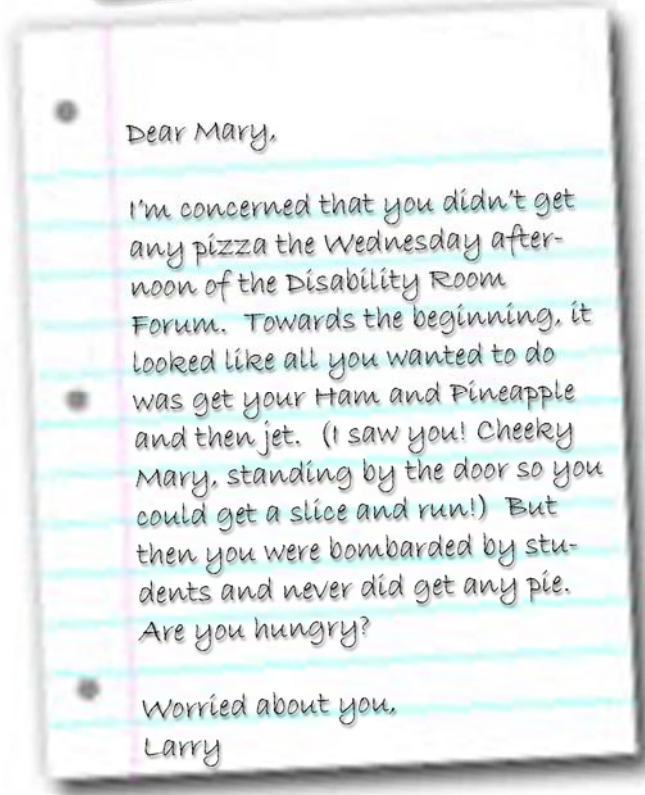 Dear Mary,
I'm concerned that you didn't get
any pizza the Wednesday after-
noon of the Disability Room
Forum.  Towards the beginning, it
looked like all you wanted to do
was get your Ham and Pineapple
and then jet.  (I saw you! Cheeky
Mary, standing by the door so you
could get a slice and run!)  But
then you were bombarded by stu-
dents and never did get any pie.
Are you hungry?
Worried about you,
Larry